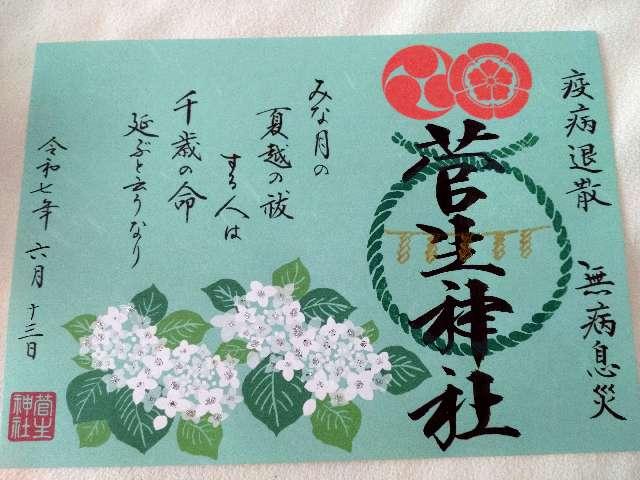 疫病退散
無病息災
菅生神社
みな月の
夏越の祓
する人は
千歳の命
延ぶと云うなり
令和七年 六月 十三日
菅生
神社